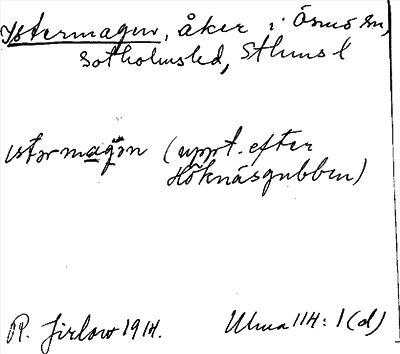 Ystermagen, åker i Ösmo sn,
Sotholmsled, Sthms l
ustərmagən (uppt. efter
Höknäsgubben)
R. Jirlow 1914. Ulma 114: 1 (d)